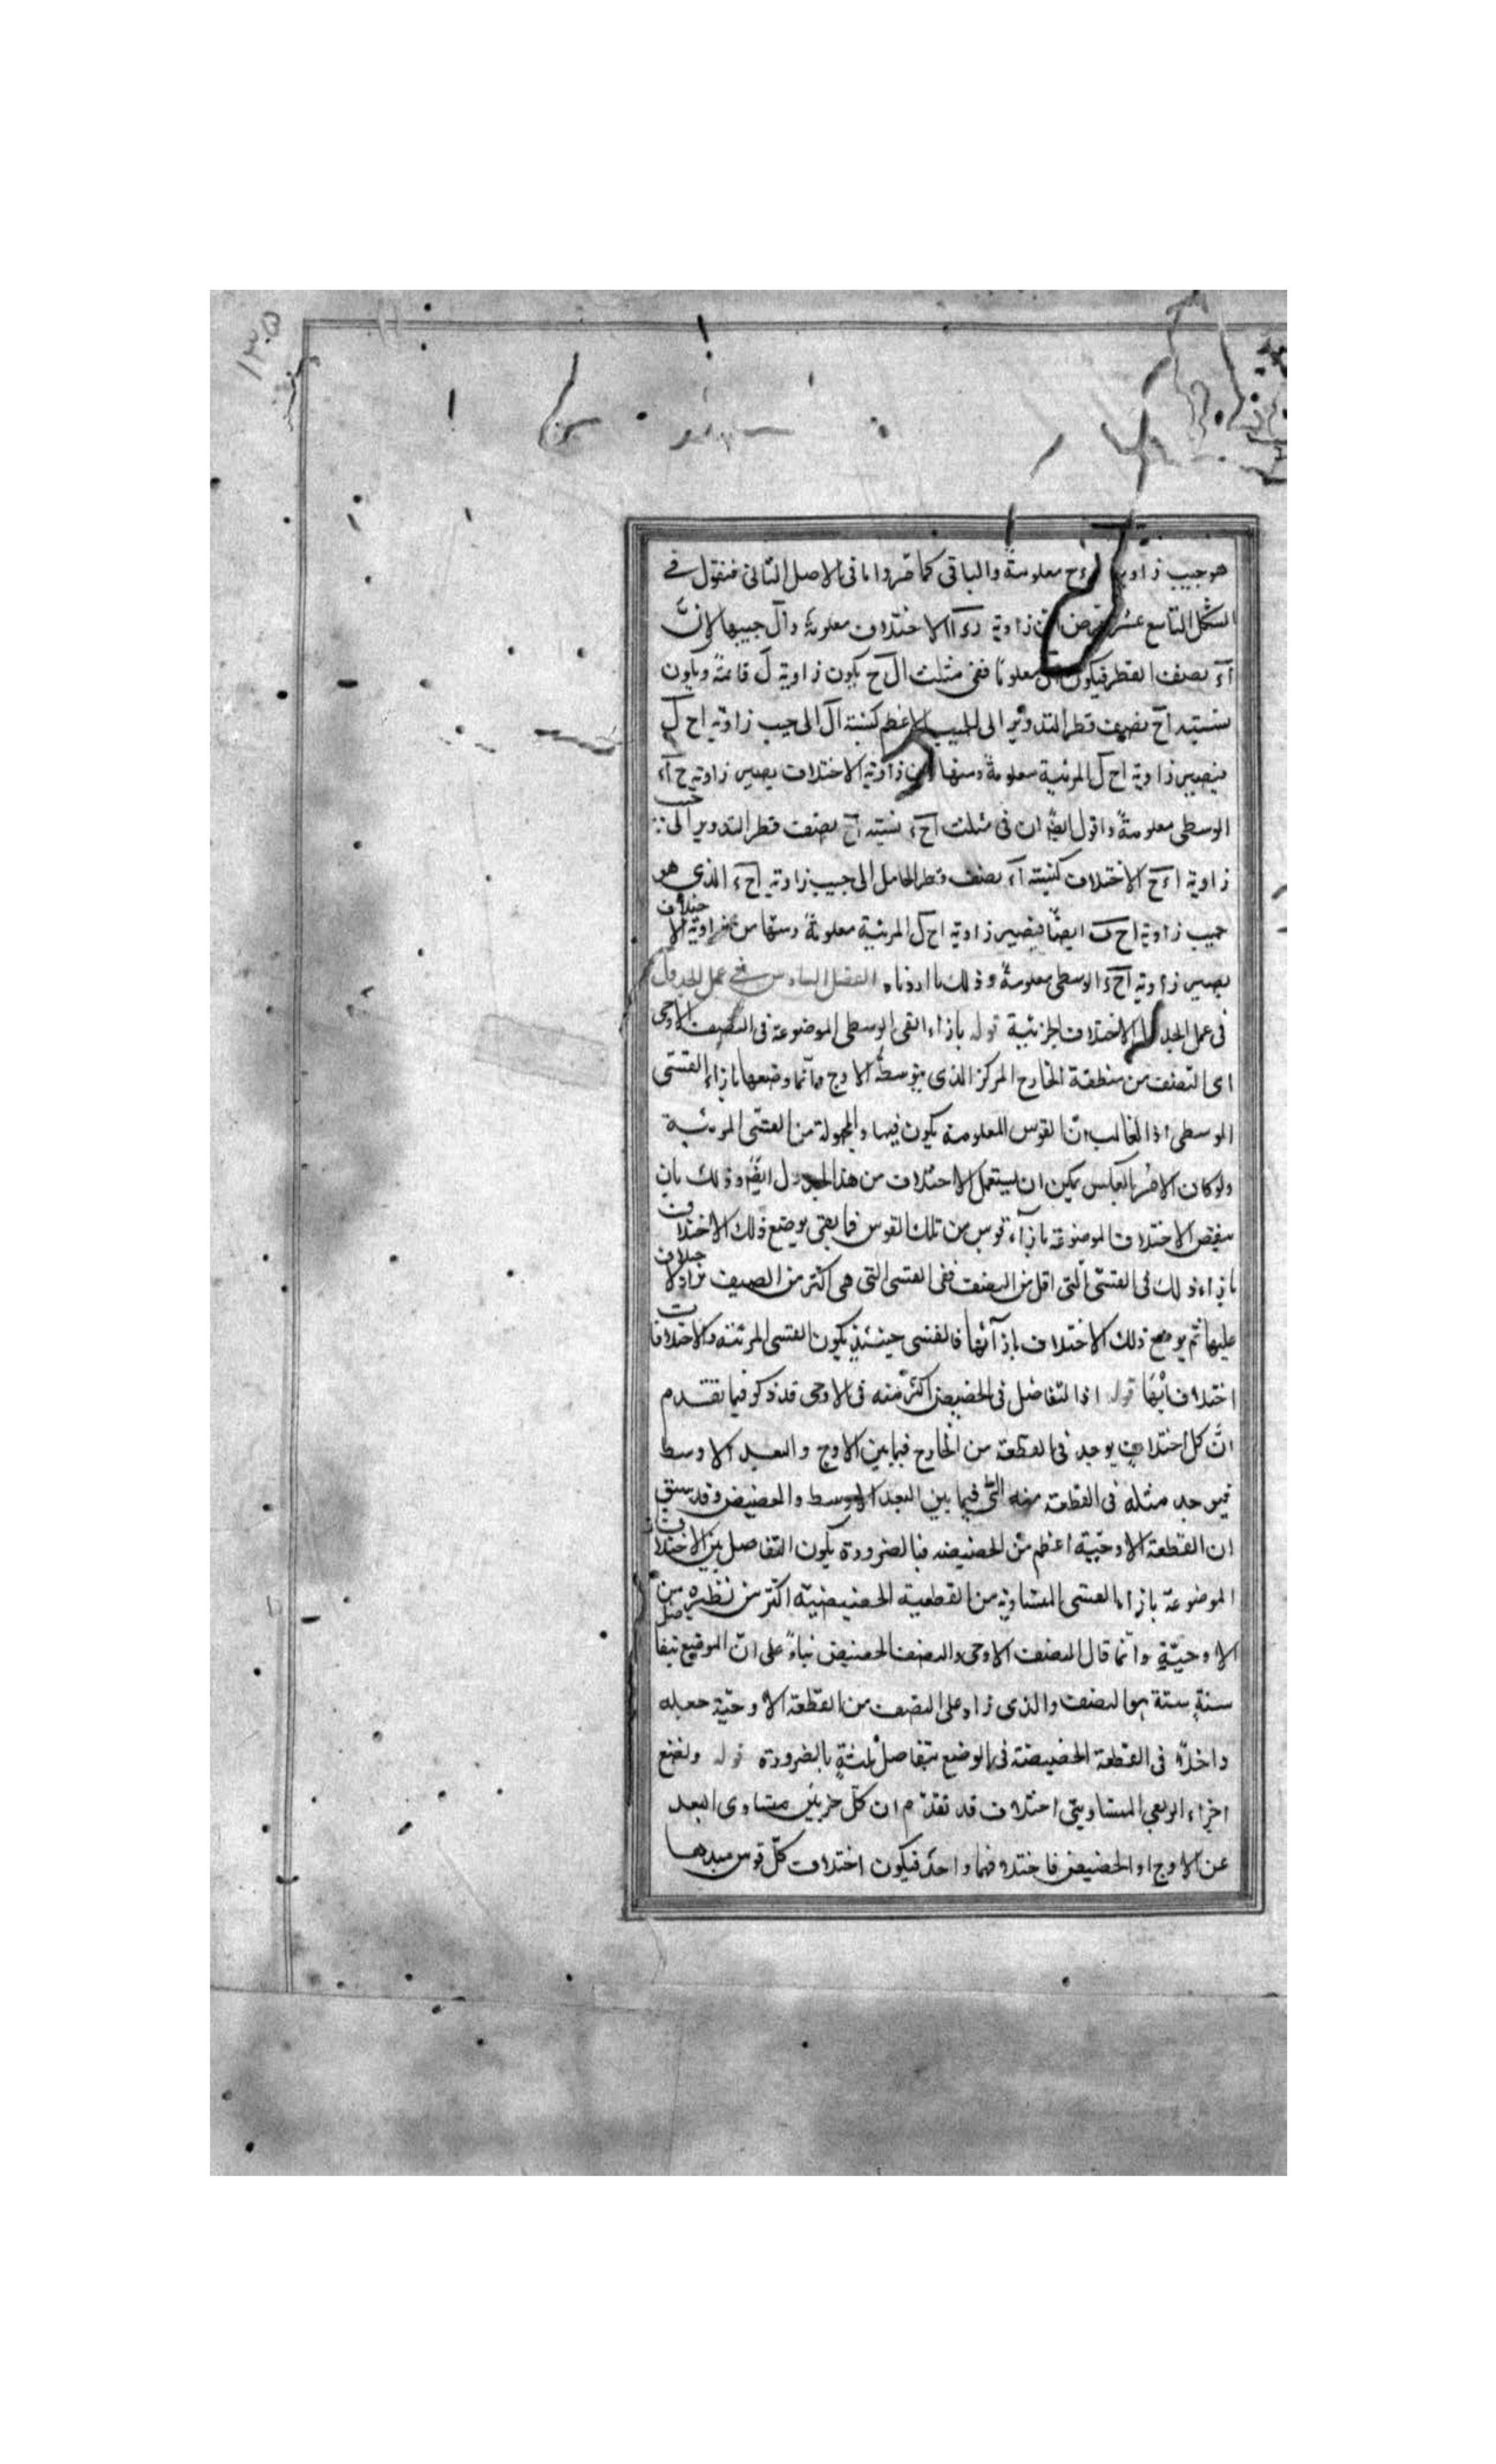 ١٣٥
هو جيب زاوية ءح معلومة والباقى كما مر واما فى الاصل الثانى فنقول فى
الشكل التاسع عشر نفرض ان زاوية رءآ الاختلاف معلومة وآل جيبها لانّ
آء نصف القطر فيكون معلومًا ففى مثلث ال ح يكون زاوية ل قائمة ويكون
نسبته آح نصف قطر التدوير الى الجيب الاعظم كنسبة آل الى جيب زاوية اح ل
فيصير زاوية اح ل المرئية معلومة ومنها زاوية الاختلاف يصير زاوية ح آء
الوسطى معلومةً واقول ايضًا ان فى مثلث آحء نسبته آح نصف قطر التدوير الى جيب
زاوية اءح الاختلاف كنسبته آء نصف قطر الحامل الى جيب زاوية احء الذى هو
جيب زاوية اح ايضًا فيصير زاوية اح ل المرئية معلومةً ومنها من زاوية الاختلاف
يصير زاوية آحء الوسطى معلومةً وذلك ما اردناه الفصل السادس فى عمل الجدول
فى عمل الجدول الاختلاف الجزئية قوله بازاء القسى الوسطى الموضوعة فى النصف الاوجى
اى النصف من منطقة الخارج المركز الذى يتوسطه الاوج وانّما وضعها بازاء القسى
الوسطى اذ الغالب انّ القوس المعلومة يكون فيها والمجهولة من القسى المرئية
ولو كان الامر بالعكس يمكن ان يستعمل الاختلاف من هذا الجدول ايضًا وذلك بان
ينقص الاختلاف الموضوعة بازآء قوس من تلك القوس فما بقى يوضع ذلك الاختلاف
بازاء ذلك فى القسى التى اقل من النصف ففى القسى التى هى اكثر من النصف يزاد الاختلاف
عليها ثم يوضع ذلك الاختلاف بازآئها فالقسى حينئذٍ يكون القسى المرئية والاختلافات
اختلافاتها قوله اذ التفاضل فى الحضيض اكثر منه فى الاوجى قد ذكر فيما تقدم
انّ كل اختلاف يوجد فى القطعة من الخارج فيما بين الاوج والبعد الاوسط
فيوجد مثله فى القطعة منه التى فيما بين البعد الاوسط والحضيض وقد سبق
ان القطعة الاوجيّة اعظم من الحضيضه فبالضرورة يكون التفاضل بين الاختلافات
الموضوعة بازاء القسى المتساوية من القطعة الحضيضيّة اكثر من نظيره من
الاوجيّةِ وانّما قال النصف الاوجى والنصف الحضيض بناءً على انّ الموضع بتفاضل
ستةٍ ستة هو النصف والذى زاد على النصف من القطعة الاوجيّة جعله
داخلاً فى القطعة الحضيضة فى الوضع بتفاضل ثلثةٍ بالضرورة قوله ولنضع
اجزاء الربعى المتساويتى اختلاف قد تقدّم ان كلّ جزئين متساوى البعد
عن الاوج او الحضيض فاختلافهما واحدٌ فيكون اختلاف كلّ قوس مبدءها